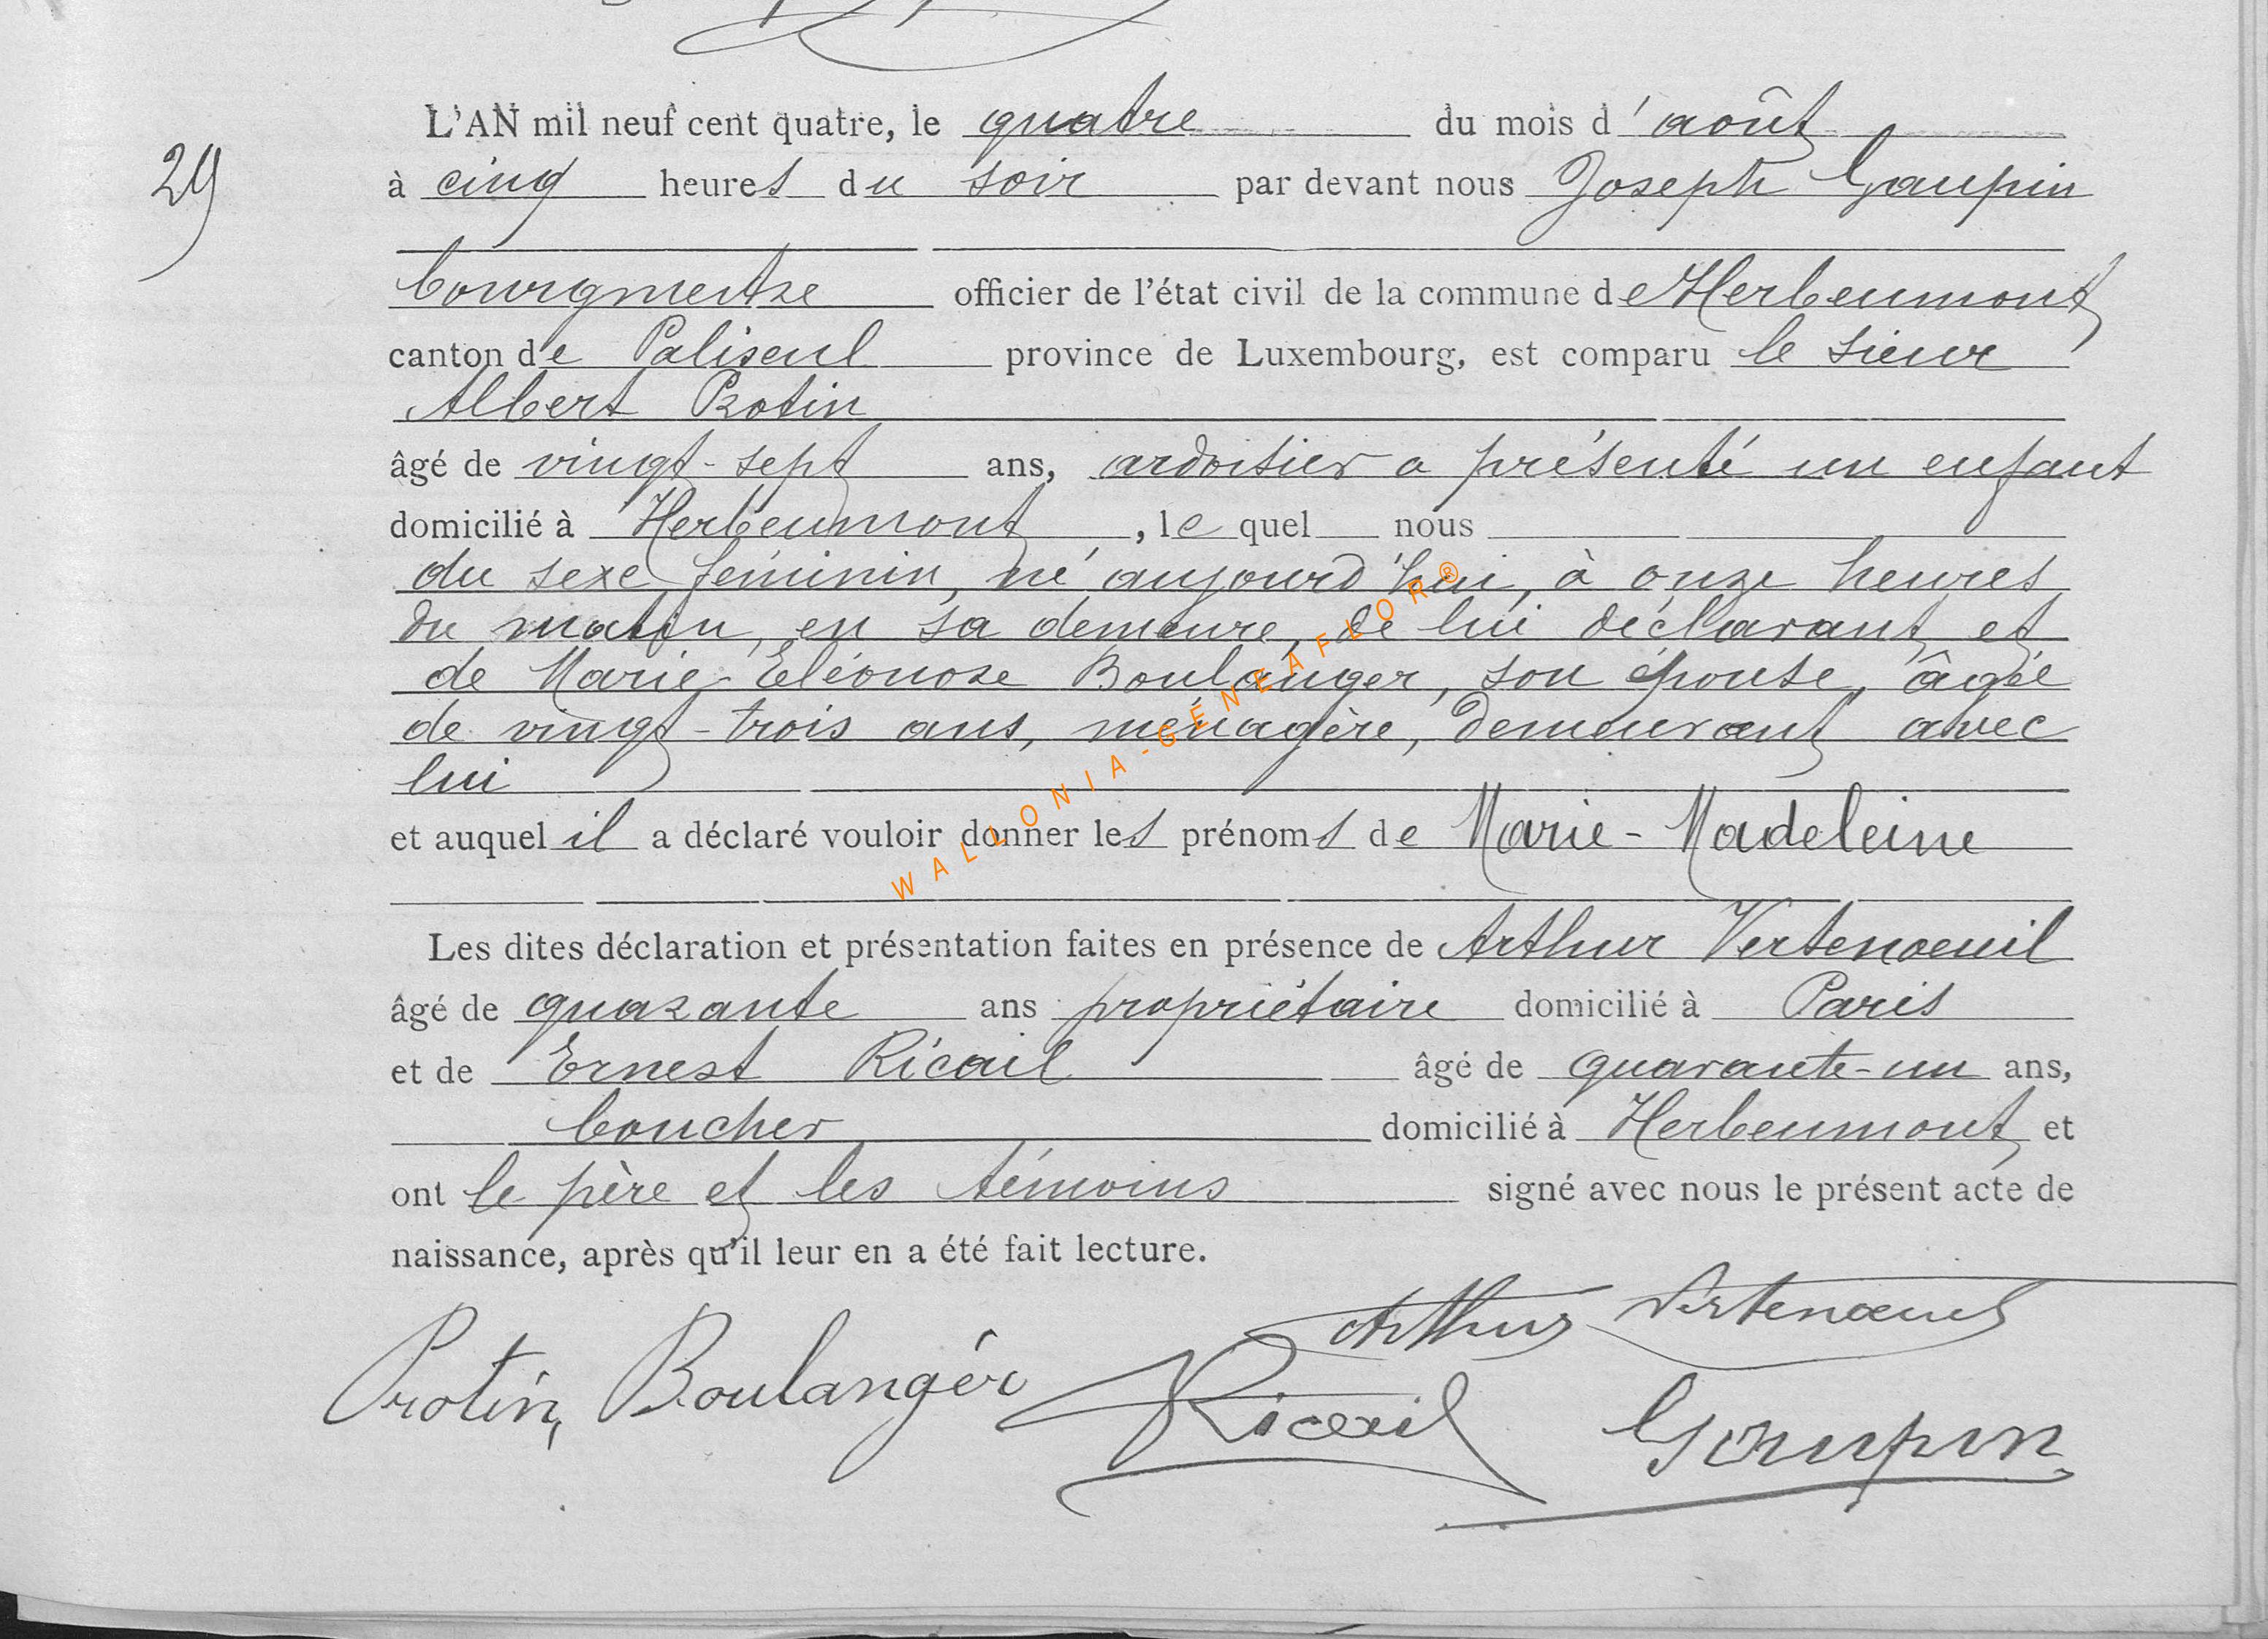 L'AN mil neuf cent quatre, le quatre du mois d'août
29
à cinq heures du soir par devant nous Joseph Goupin
bourgmestre officier de l'état civil de la commune de Herbeumont
canton de Paliseul province de Luxembourg, est comparu le sieur
Albert Protin
âgé de vingt-sept ans, ardoisier a présenté un enfant
domicilié à Herbeumont, lequel nous
du sexe féminin, né aujourd'hui, à onze heures
du matin, en sa demeure, de lui déclarant et
de Marie-Eléonore Boulanger, son épouse, âgée
de vingt-trois ans, ménagère, demeurant avec
lui
et auquel il a déclaré vouloir donner les prénoms de Marie-Madeleine
Les dites déclaration et présentation faites en présence de Arthur Vertenoeuil
âgé de quarante ans propriétaire domicilié à Paris
et de Ernest Ricail âgé de quarante-un ans,
boucher domicilié à Herbeumont et
ont le père et les témoins signé avec nous le présent acte de
naissance, après qu'il leur en a été fait lecture.
Arthur Vertenoeuil
Protin, Boulangér Ricail Goupin
WALLONIA-GÉNÉAFLOR®